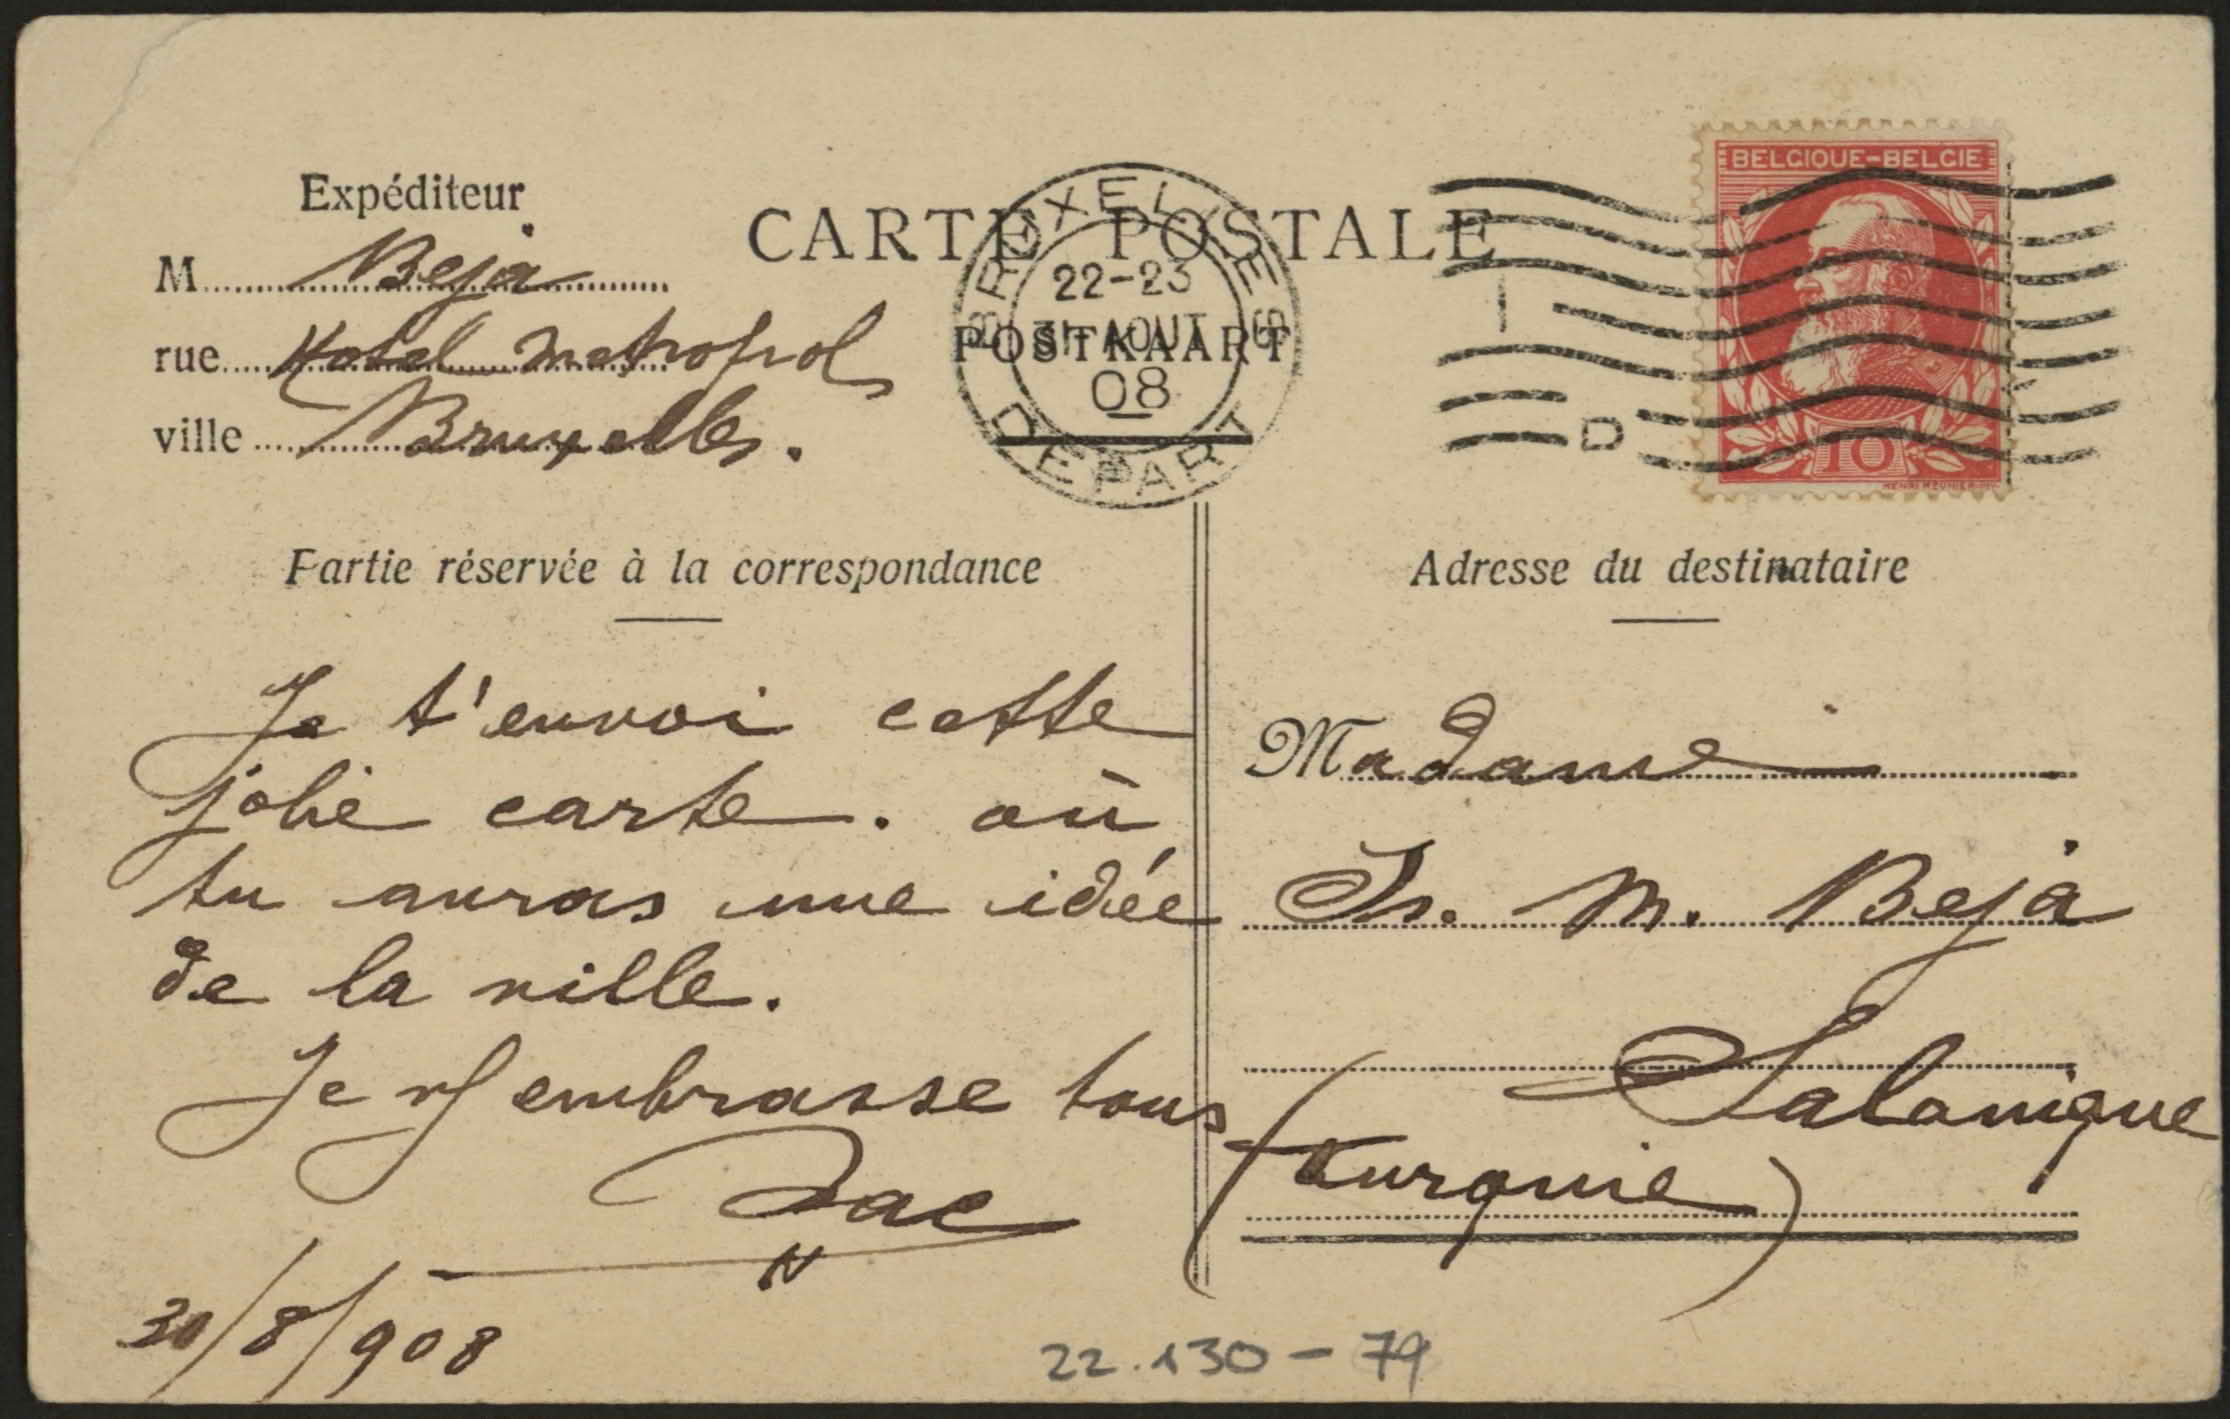 Expéditeur
M Beja
rue Hotel Metropol
ville Bruxelles.
CARTE POSTALE
POSTKAART
BRUXELLES
22-23
31 AOUT
08
DEPART
BELGIQUE-BELGIE
10
HENRI MEUNIER INV.
D
Partie réservée à la correspondance
Je t'envoi cette
jolie carte. où
tu auras une idée
de la ville.
Je vs embrasse tous
Jac
30/8/908
Adresse du destinataire
Madame
Is. M. Beja
Salonique
(turquie)
22.130-79